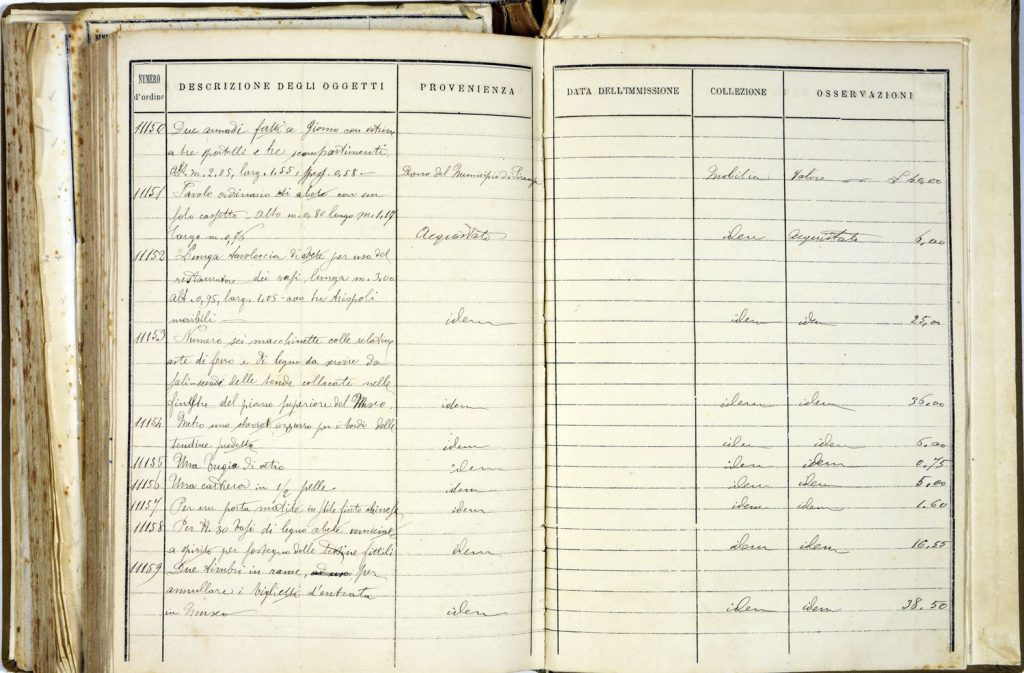 NUMERO d'ordine DESCRIZIONE DEGLI OGGETTI PROVENIENZA DATA DELL'IMMISSIONE COLLEZIONE OSSERVAZIONI
11150 Due armadi fatti a giorno con vetrin
a tre sportelli e tre scompartimenti.
Alt. m. 2.05, larg. 1.55, prof. 0,58.— Dono del Municipio di Mobilia Valore — £ 40,00
11151 Tavolo ordinario di abete con un
solo cassetto — Alto m. 0,80 lungo m. 1.17
largo m. 0,76 Acquistato idem acquistato 6,00
11152 Lunga tavoloccia di abete per uso del
restauratore dei vasi, lunga m. 3,00
alt. 0,95, larg. 1.05 — con tre trispoli
movibili — idem idem idem 25,00
11153 Numero sei macchinette colle relative
aste di ferro e di legno da servire da
sali-scendi delle tende collocate nelle
finestre del piano superiore del Museo idem idem idem 36.00
11154 Metro uno cheviot azzurro per i bordi delle
tendine predette idem idem idem 5.00
11155 Una bugia di idem idem idem 0,75
11156 Una cartiera in 1/2 pelle idem idem idem 5.00
11157 Per un porta matite in stile finto chinese idem idem idem 1.60
11158 Per N. 20 basi di legno abete verniciat
a spirito per sostegno delle fittili idem idem idem 16.55
11159 Due timbri in rame, ad uso per
annullare i biglietti d'entrata
in Museo idem idem idem 38.50